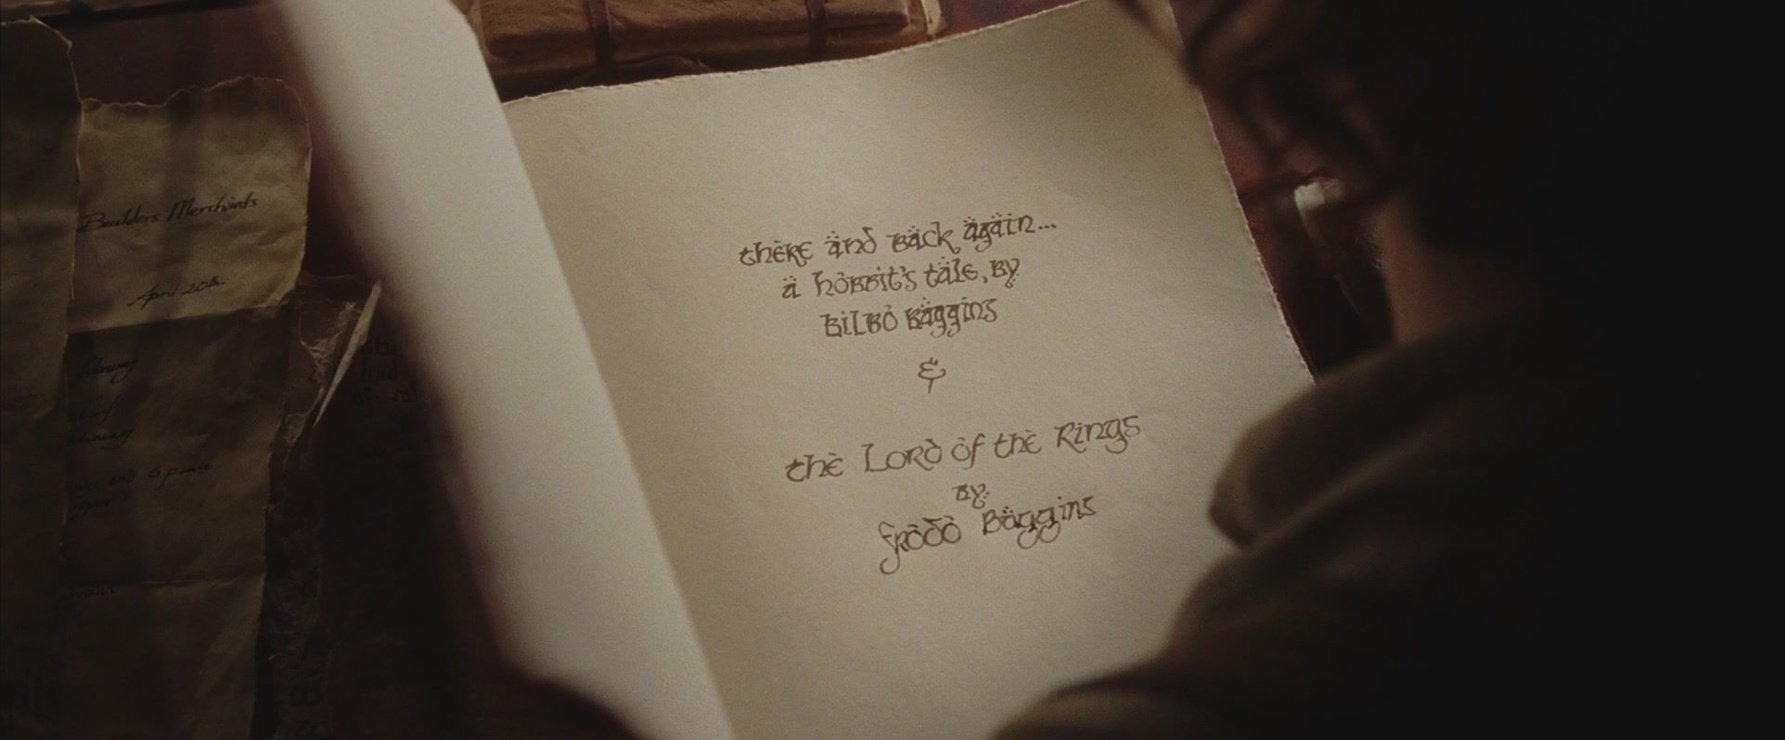 Builders Merchants
April 20th
thère änd Bäck ägäin...
ä hòbbit's täle, By
Bilbò Bäggins
&
thè Lord òf thè Rings
By
fròdò Bäggins